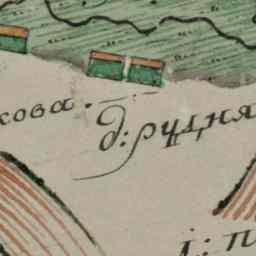 кова.
д: рудня
д: п